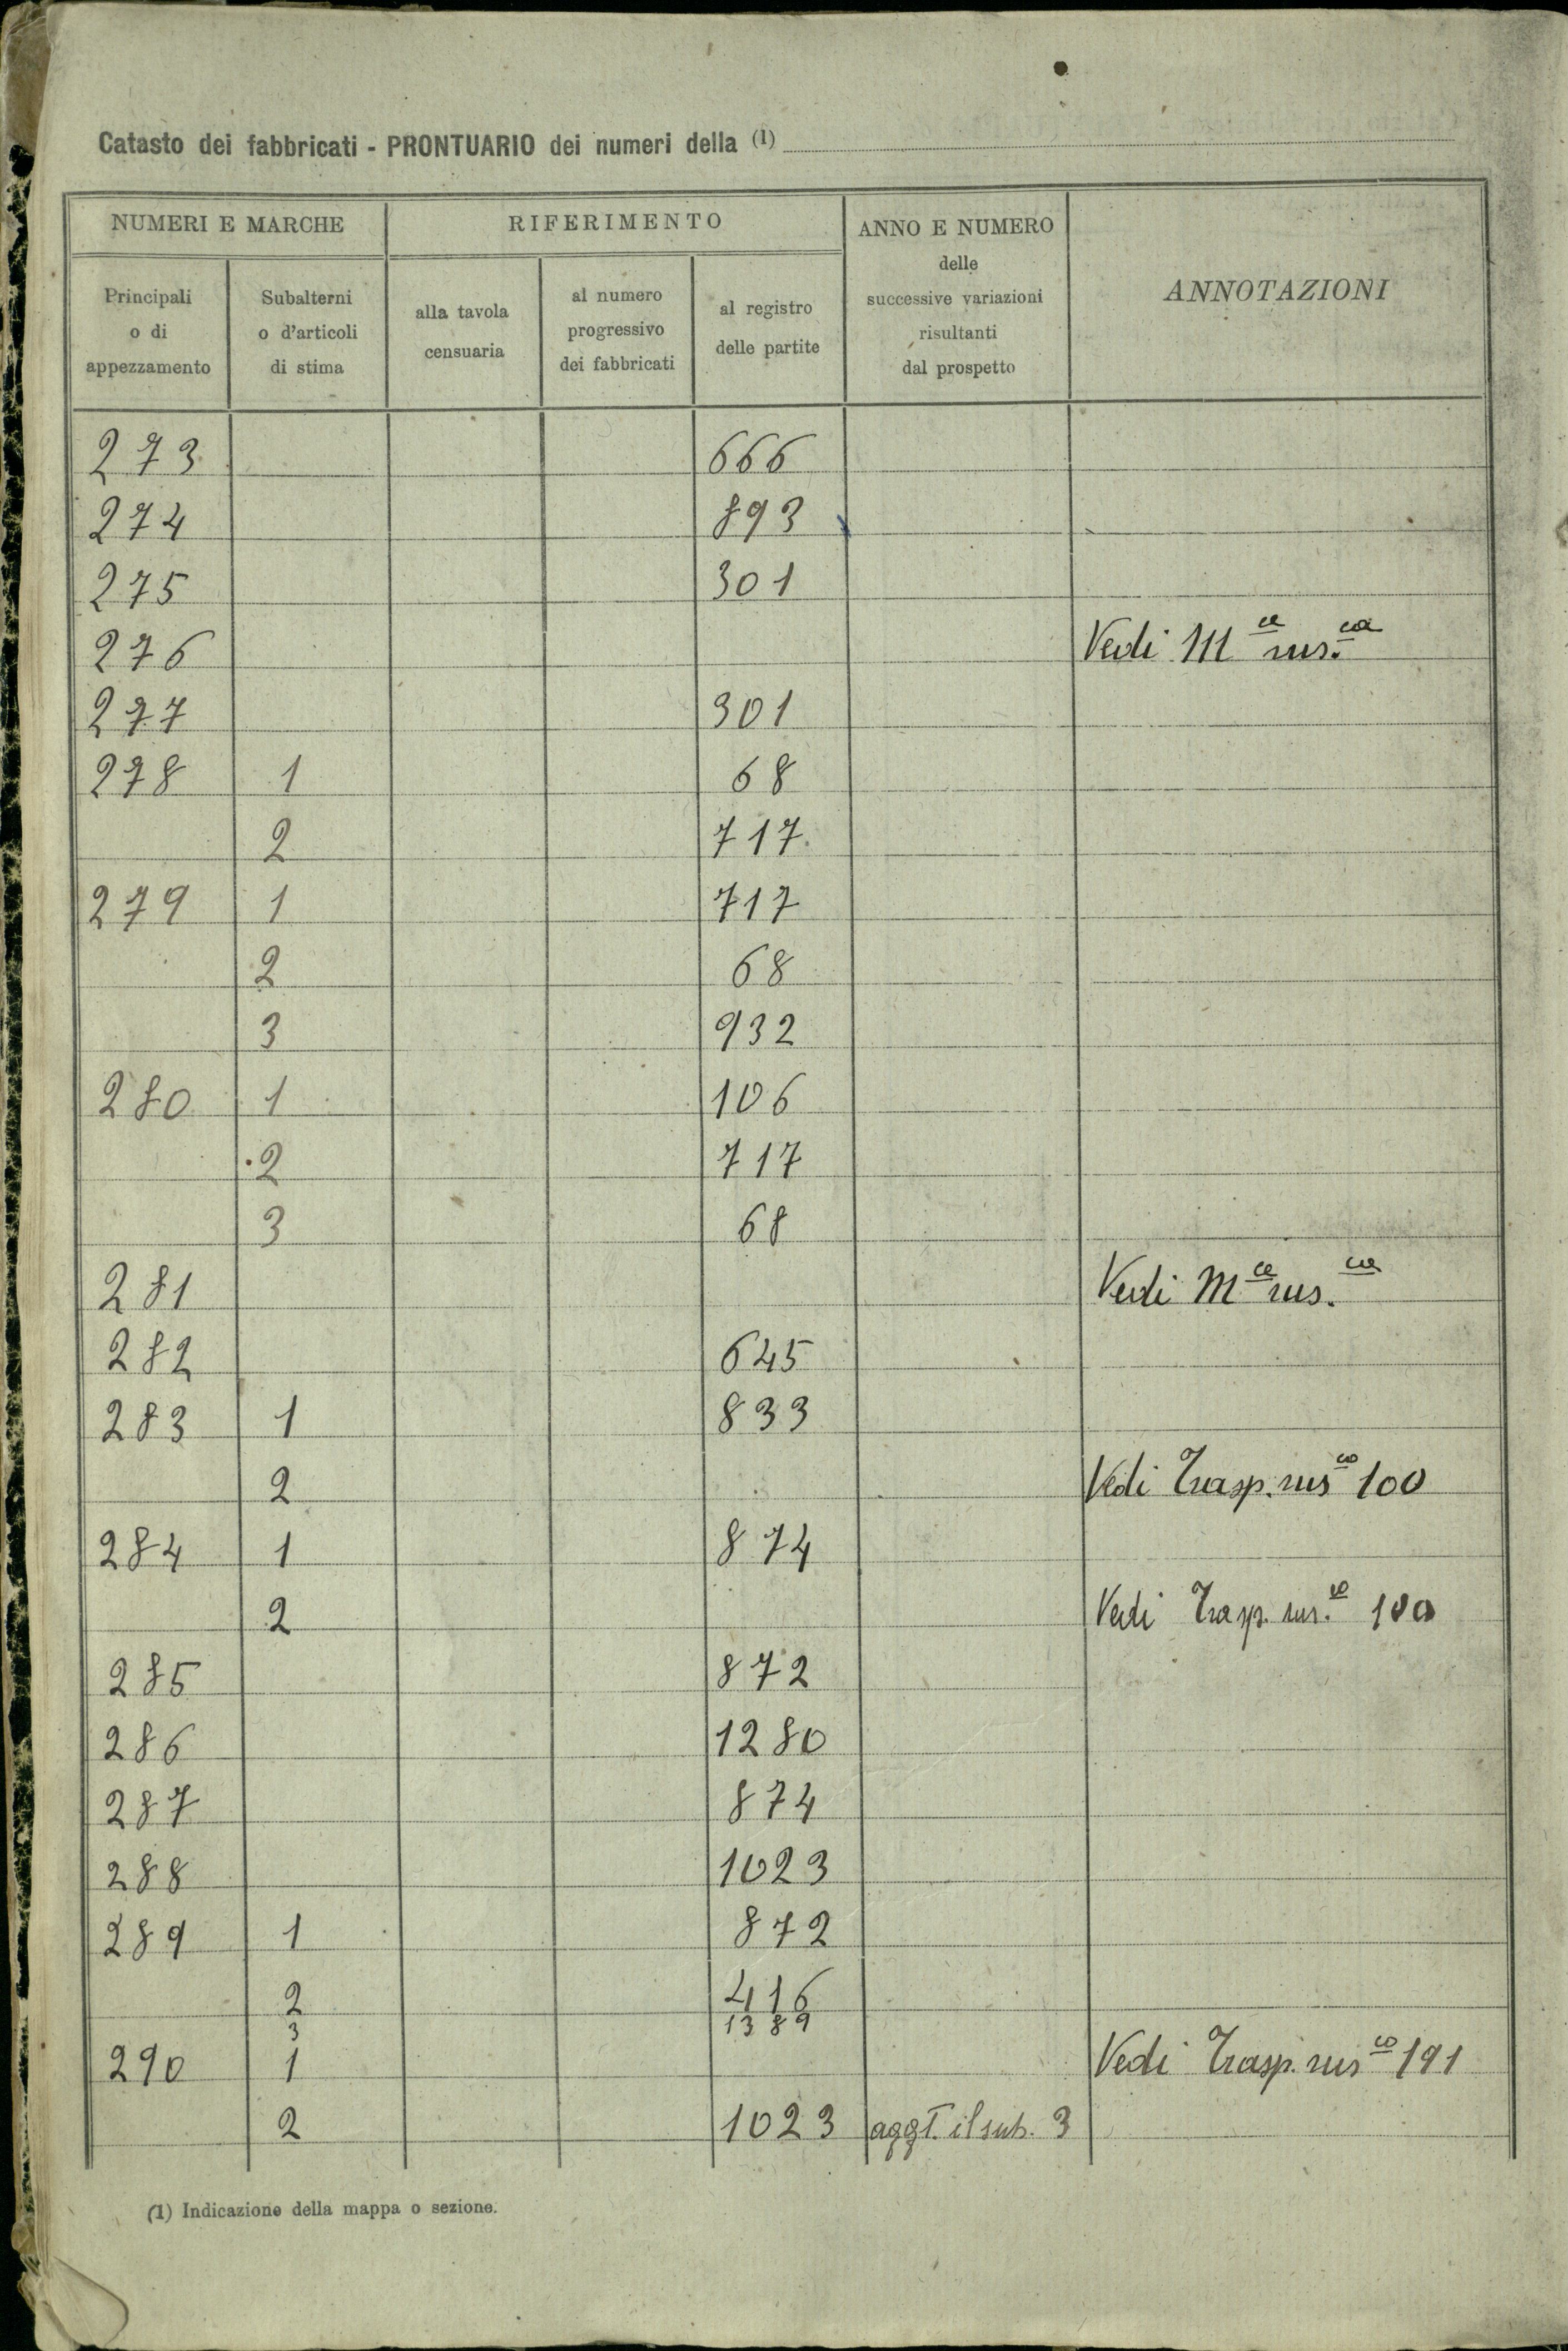 Catasto dei fabbricati - PRONTUARIO dei numeri della (1)
NUMERI E MARCHE RIFERIMENTO ANNO E NUMERO delle successive variazioni risultanti dal prospetto ANNOTAZIONI
Principali o di appezzamento Subalterni o d'articoli di stima alla tavola censuaria al numero progressivo dei fabbricati al registro delle partite
273 666
274 893
275 301
276 Vedi M ca rus. ca
277 301
278 1 68
2 717
279 1 717
2 68
3 932
280 1 106
2 717
3 68
281 Vedi M ca rus. ca
282 645
283 1 833
2 Vedi Trasp. rus co 100
284 1 874
2 Vedi Trasp. rus. co 100
285 872
286 1280
287 874
288 1023
289 1 872
2 416
3 1389
290 1 Vedi Trasp. rus co 191
2 1023 aggt. il sub. 3
(1) Indicazione della mappa o sezione.